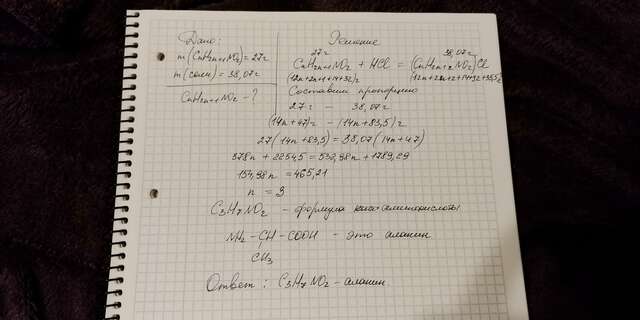 Дано:
m(CnH2n+1NO2)=27г
m(соли)=38,07г
CnH2n+1NO2 - ?
Решение
27г 38,07г
CnH2n+1NO2 + HCl = (CnH2n+2NO2)Cl
(12n+2n+1+14+32)г (12n+2n+2+14+32+35,5)г
Составим пропорцию
27г - 38,07г
(14n+47)г - (14n+83,5)г
27(14n+83,5)=38,07(14n+47)
378n + 2254,5 = 532,98n + 1789,29
154,98n = 465,21
n = 3
C3H7NO2 - формула аминокислоты
NH2 - CH - COOH - это аланин
CH3
Ответ: C3H7NO2 - аланин.